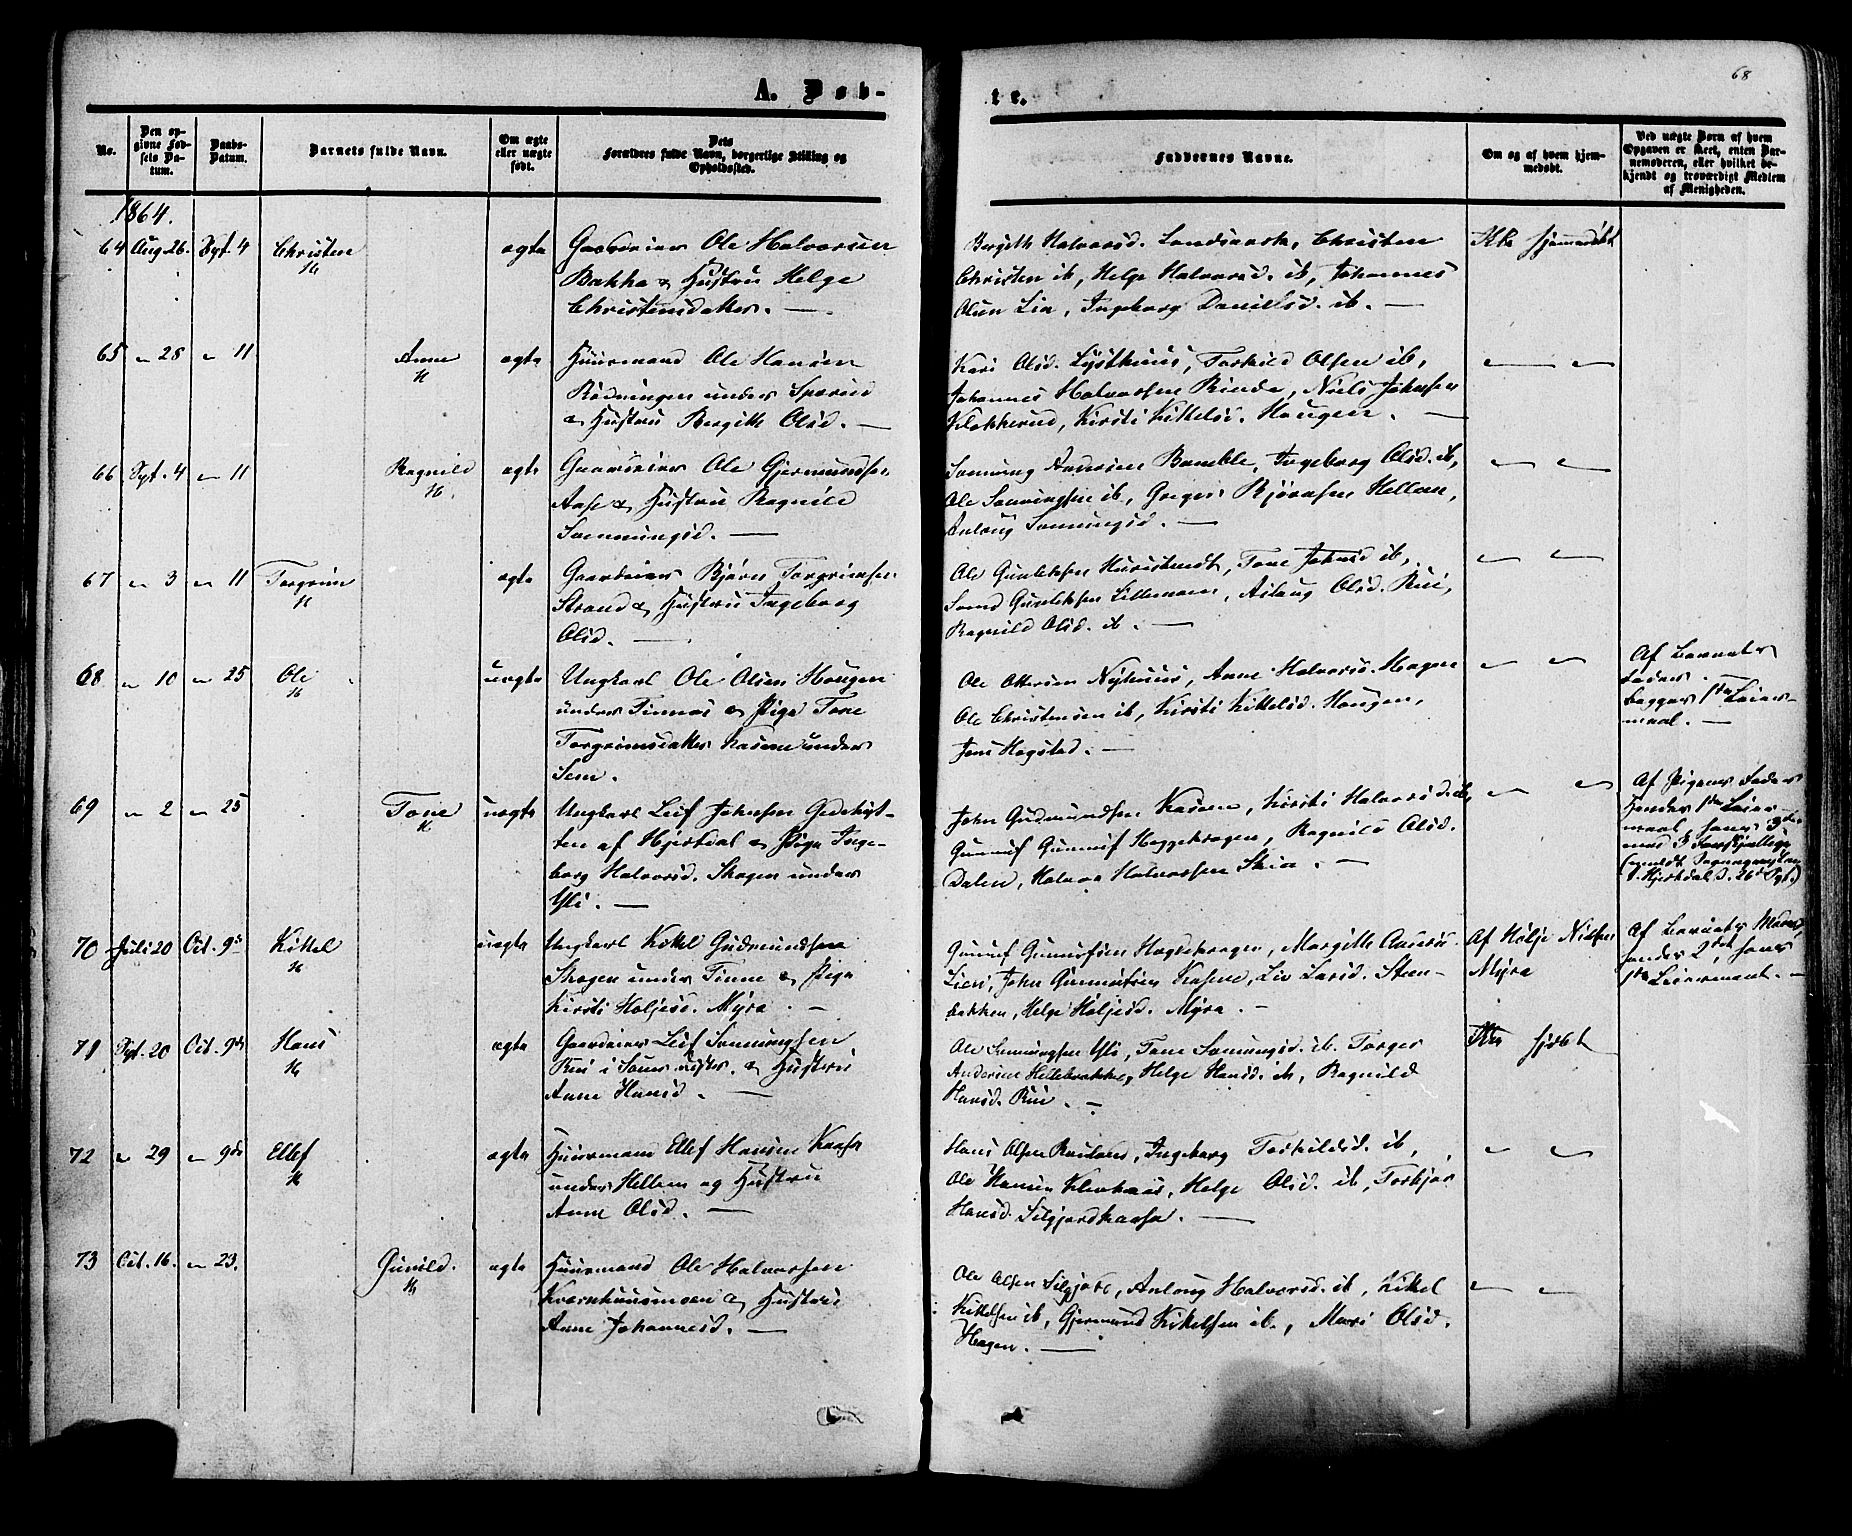 68
A. Døb-
te.
No.
Den op-
givne Fød-
sels Da-
tum.
Daabs-
Datum.
Barnets fulde Navn.
Om ægte
eller uægte
født.
Dets
Forældres fulde Navn, borgerlige Stilling og
Opholdssted.
Faddernes Navne.
Om og af hvem hjem-
medøbt.
Ved uægte Børn af hvem
Opgaven er skeet, enten Bar-
nemoderen, eller hvilket be-
kjendt og troværdigt Medlem
af Menigheden.
1864.
64 Aug. 26. Spt. 4 Christen ægte Gaardeier Ole Halvorsen
Bakka & Hustru Helge
Christensdatter. —
Bergith Halvorsd. Landsverk, Christen
Christen ib, Helge Halvorsd. ib, Johannes
Olsen Lia, Ingeborg Danielsd. ib. —
Ikke hjemmedøbt
65 " 28 " 11 Anne ægte Huusmand Ole Hansen
Rødningen under Sperud
& Hustru Bergith Olsd. —
Kari Olsd. Lysthuus, Torkild Olsen ib,
Johannes Halvorsen Rinde, Niels Johnsen
Klokkerud, Kirsti Kittelsd. Haugen. —
66 Spt. 4 " 11 Ragnild ægte Gaardeier Ole Gjermundsen
Aase & Hustru Ragnild
Sonnungsd. —
Sonnung Andersen Bamble, Ingeborg Olsd. ib,
Ole Sonnungsen ib, Greger Bjørnsen Hellem,
Anlaug Sonnungsd. —
67 " 3 " 11 Torgrim ægte Gaardeier Bjørn Torgrimsen
Strand & Hustru Ingeborg
Olsd. —
Ole Gunleksen Hustveit, Tone Johnsd ib,
Gunleksen Lillemoen, Aslaug Olsd. Rui,
Ragnild Olsd. ib. —
68 " 10 " 25 Ole uægte Ungkarl Ole Olsen Haugen
under Tinnes & Pige Tone
Torgrimsdatter Kasene under
Sem.
Ole Ottersen Nyhuus, Anne Halvorsd. Hagen
Ole Christensen ib, Kirsti Kittelsd. Haugen,
Jens Hogstad. —
Af Barnets
Fader.
Begges 1ste Leier-
maal. —
69 " 2 " 25 Tone uægte Ungkarl Leif Johnsen Gedehyt-
ten af Hjertdal & Pige Inge-
borg Halvorsd. Skogen under
Yli. —
John Gudmundsen Kasene, Kirsti Halvorsd. ib,
Gunnuf Gunnuf Heggekragen, Ragnild Olsd.
Dalen, Halvor Halvorsen Skia. —
Af Pigens Fader
hendes 1ste Leier-
maal, hans 3die
med 3 forskjellige
70 Juli 20 Oct. 9de Kittel uægte Ungkarl Kittel Gudmundsen
Skogen under Tinne & Pige
Kirsti Holjesd. Myra. —
Gunuf Gunnufsen Hagtekragen, Margith
Lien, John Gunmundsen Kasene, Liv Larsd. Steen-
bakken, Helge Holjesd. Myra. —
Af Holje Nilsen
Myra
Af Barnets Moder,
hendes 2det, hans
1ste Leiermaal. —
71 Spt. 20 Oct. 9de Hans ægte Gaardeier Leif Sonnungsen
Rui i & Hustru
Anne Hansd. —
Ole Sonnungsen Yli, Tone Sonnungsd. ib. Torger
Andersen Hellebrekke, Helge Hansd. ib, Ragnild
Hansd. Rui. —
Ikke hjdbt
72 " 29 " 9de Ellef ægte Huusmand Ellef Hansen Kaasa
under Hellem og Hustru
Anne Olsd. —
Hans Olsen Rauland, Ingeborg Torkildsd. ib,
Ole Hansen Klevhaas, Helge Olsd. ib, Torbjør
Hansd. Silgjordkaasa. —
73 Oct. 16. " 23. Gunild. ægte Huusmand Ole Halvorsen
Kvernhuusmoen & Hustru
Anne Johannesd. —
Ole Olsen Silgjord, Anlaug Halvorsd. ib, Kittel
Kittelsen ib, Gjermund Kittelsen ib., Mari Olsd.
Hagen. —